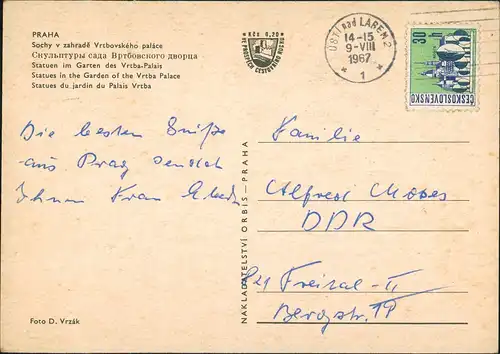 PRAHA
Sochy v zahradě Vrtbovského paláce
Скульптуры сада Вртбовского дворца
Statuen im Garten des Vrtba-Palais
Statues in the Garden of the Vrtba Palace
Statues du jardin du Palais Vrtba
Kčs 0,20
VE PROSPĚCH CESTOVNÍHO RUCHU
ÚSTÍ nad LABEM 2
14-15
9-VIII
1967
* 1 *
30
ČESKOSLOVENSKO
Die besten Grüße
aus Prag sendet
Ihnen Frau
Familie
Alfred Moses
DDR
Freital-II
Bergstr. 19
NAKLADATELSTVÍ ORBIS - PRAHA
Foto D. Vrzák